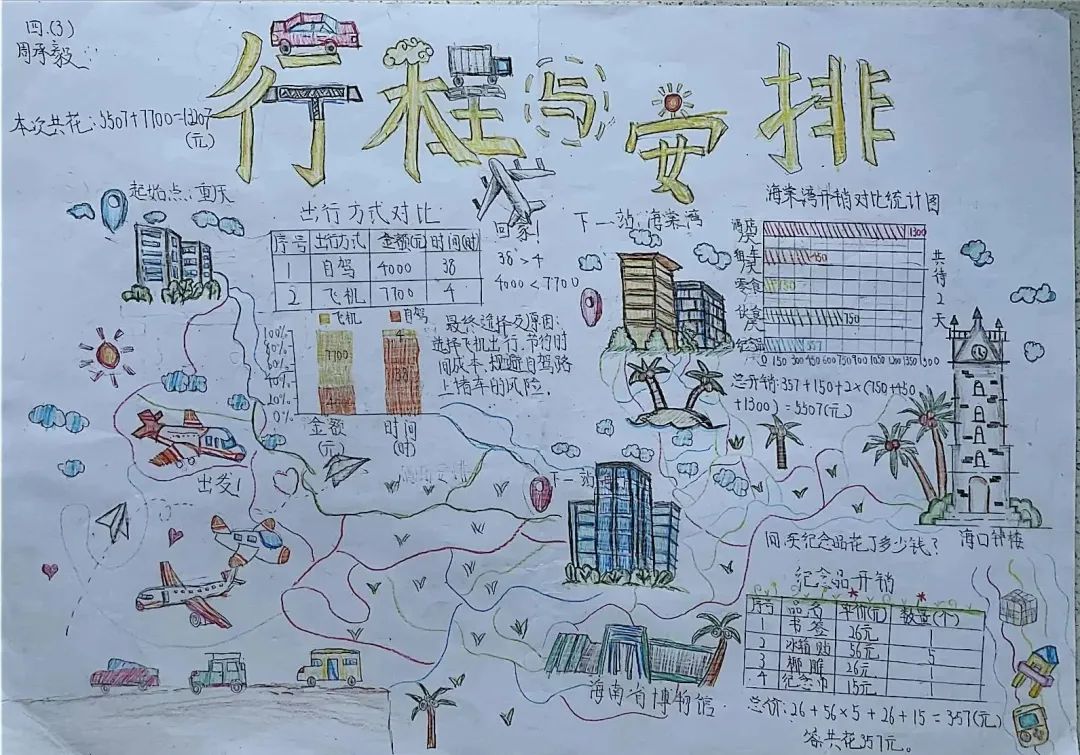 四.(3)
周承毅
行程与安排
本次共花:5507+7700=13207
(元)
起始点:重庆
出行方式对比
序号 出行方式 金额(元) 时间(时)
1 自驾 4000 38
2 飞机 7700 4
回家!
38>4
4000<7700
飞机 自驾
100%
80%
60%
40%
20%
0%
7700
4
38
金额
(元)
时间
(时)
最终选择及原因:
选择飞机出行,节省时
间成本,规避自驾路
上堵车的风险。
下一站:海棠湾
海棠湾开销对比统计图
酒店/天 1300
租车/天 450
零食 150
伙食/天 750
纪念品 357
0 150 300 450 600 750 900 1050 1200 1350 1500
共待2天
总开销:357+150+2×(750+450
+1300)=5507(元)
出发!
下一站
海口钟楼
问:买纪念品花了多少钱?
纪念品开销
序号 品名 单价(元) 数量(个)
1 书签 26元 1
2 冰箱贴 56元 5
3 椰雕 26元 1
4 纪念币 15元 1
总价:26+56×5+26+15=357(元)
答:共花357元。
海南省博物馆